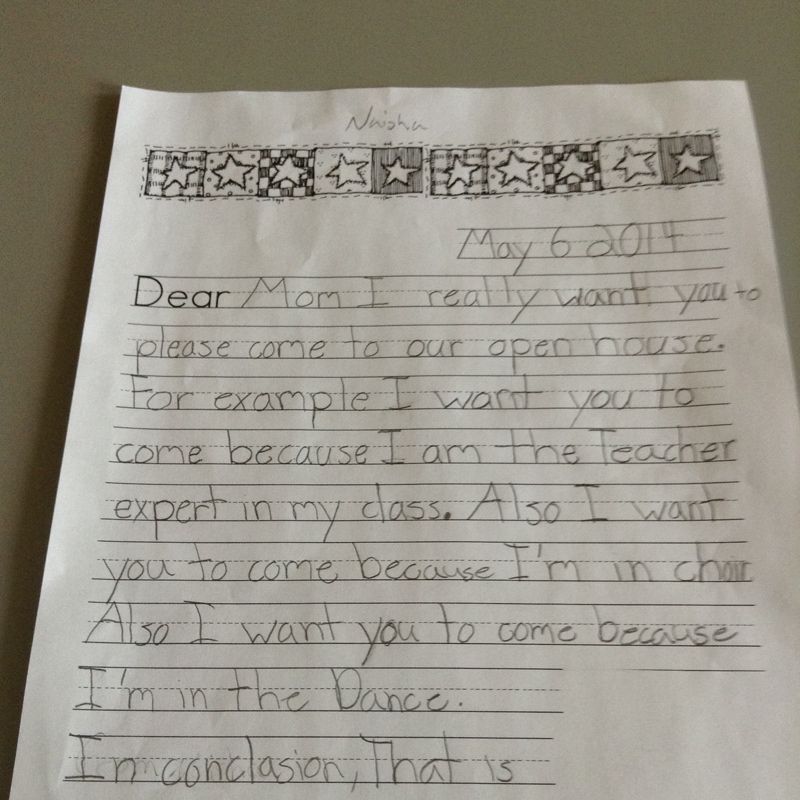 Naisha
May 6 2014
Dear Mom I really want you to
please come to our open house.
For example I want you to
come because I am the Teacher
expert in my class. Also I want
you to come because I'm in choir
Also I want you to come because
I'm in the Dance.
In conclasion, That is